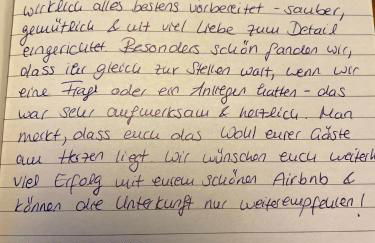 wirklich alles bestens vorbereitet - sauber,
gemütlich & mit viel Liebe zum Detail
eingerichtet Besonders schön fanden wir,
dass ihr gleich zur Stellen wart, wenn wir
eine Frage oder ein Anliegen hatten - das
war sehr aufmerksam & herzlich. Man
merkt, dass euch das Wohl eurer Gäste
am Herzen liegt wir wünschen euch weiterh
viel Erfolg mit eurem schönen Airbnb &
können die Unterkunft nur weiterempfehlen!